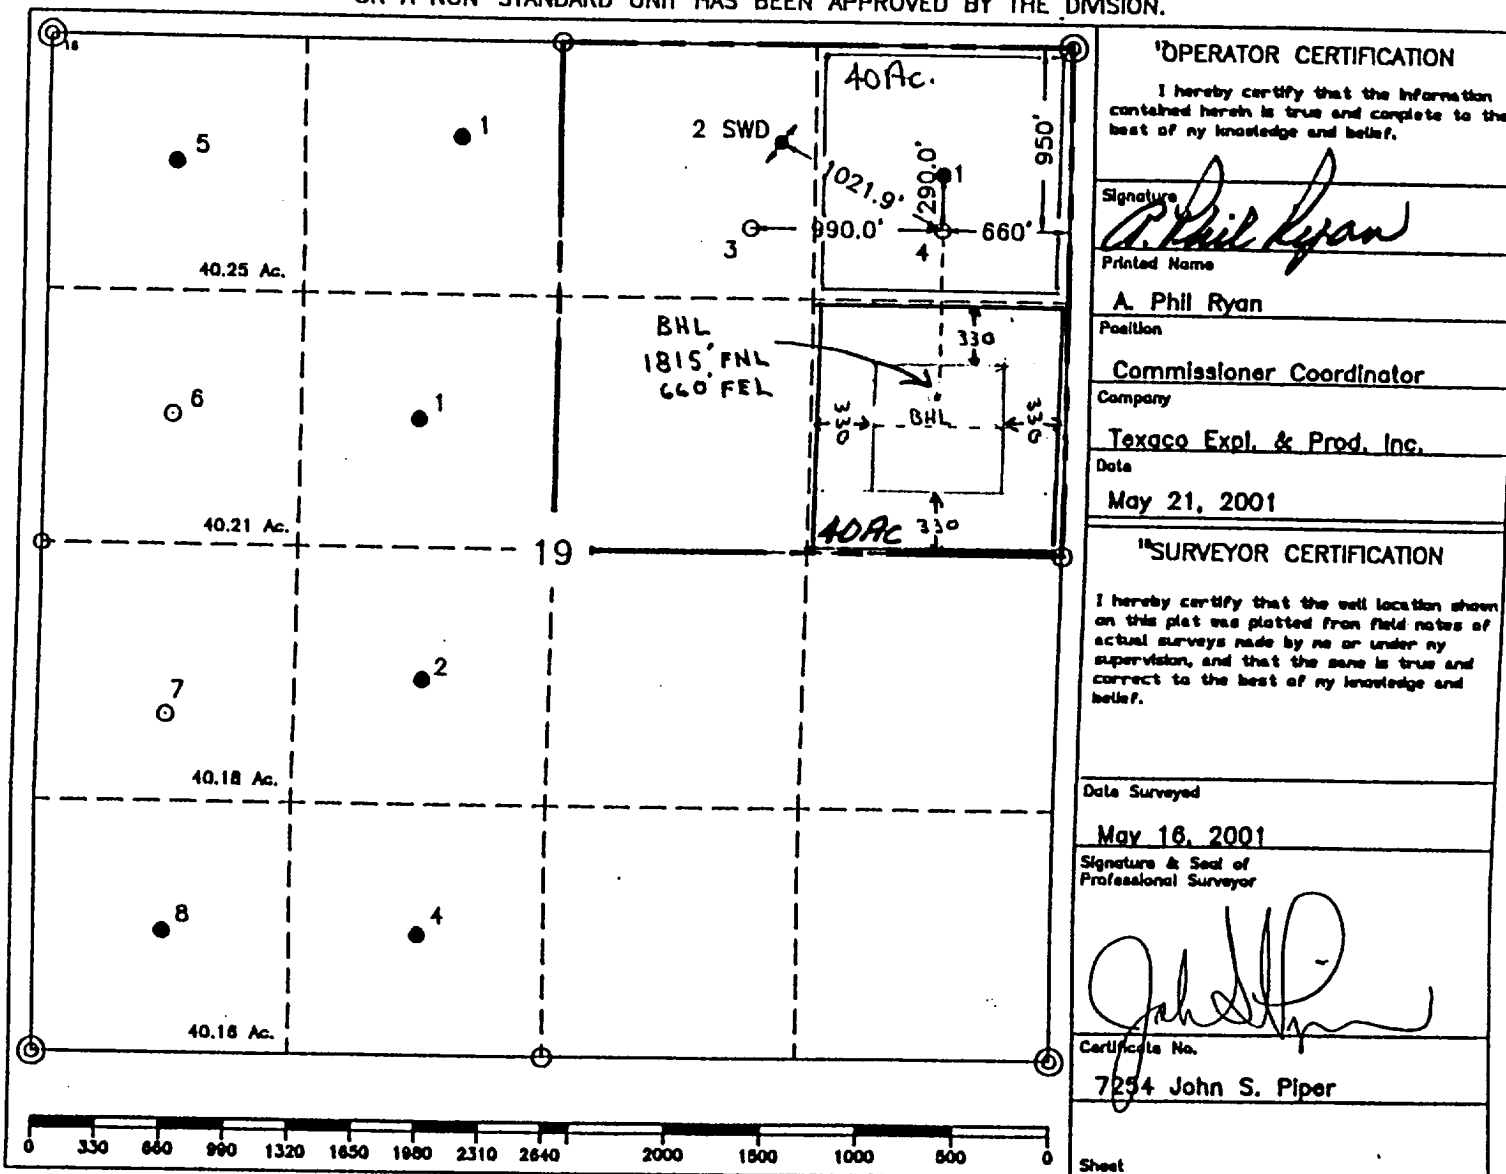 OR A NON-STANDARD UNIT HAS BEEN APPROVED BY THE DIVISION.
16
40Ac.
5
1
2 SWD
950'
1
290.0'
1021.9'
3
990.0'
4
660'
40.25 Ac.
BHL
1815' FNL
660' FEL
330
6
1
330
BHL
330
40.21 Ac.
19
40Ac
330
7
2
40.18 Ac.
8
4
40.16 Ac.
0 330 660 990 1320 1650 1980 2310 2640 2000 1500 1000 500 0
17OPERATOR CERTIFICATION
I hereby certify that the information
contained herein is true and complete to the
best of my knowledge and belief.
Signature
A. Phil Ryan
Printed Name
A. Phil Ryan
Position
Commissioner Coordinator
Company
Texaco Expl. & Prod. Inc.
Date
May 21, 2001
18SURVEYOR CERTIFICATION
I hereby certify that the well location shown
on this plat was plotted from field notes of
actual surveys made by me or under my
supervision, and that the same is true and
correct to the best of my knowledge and
belief.
Date Surveyed
May 16, 2001
Signature & Seal of
Professional Surveyor
John S. Piper
Certificate No.
7254 John S. Piper
Sheet